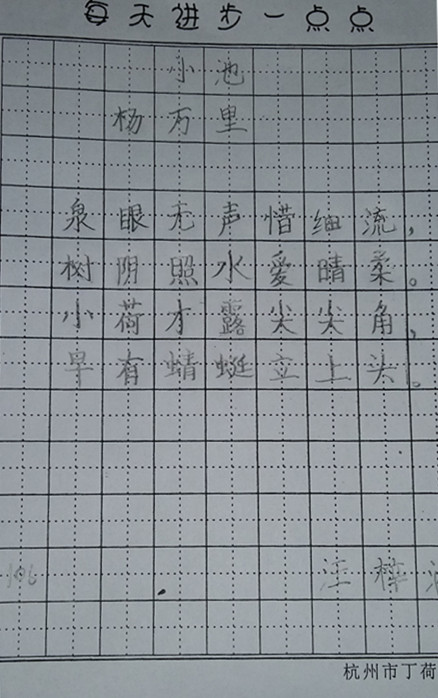 每天进步一点点
小池
杨万里
泉眼无声惜细流，
树阴照水爱晴柔。
小荷才露尖尖角，
早有蜻蜓立上头。
106 汪梓
杭州市丁荷